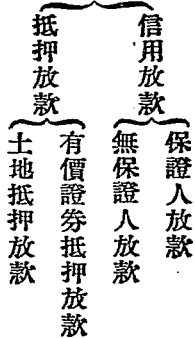 信用放款
保證人放款
無保證人放款
抵押放款
有價證券抵押放款
土地抵押放款